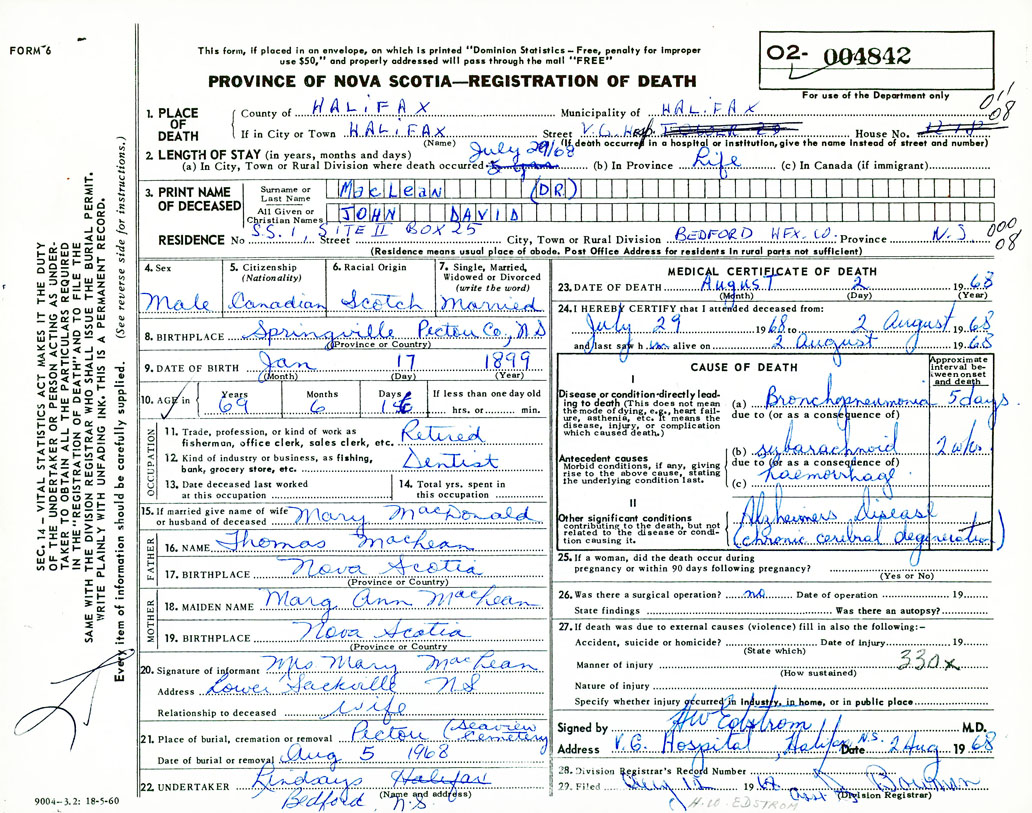 FORM 6
This form, if placed in an envelope, on which is printed "Dominion Statistics – Free, penalty for improper
use $50," and properly addressed will pass through the mail "FREE"
PROVINCE OF NOVA SCOTIA—REGISTRATION OF DEATH
O2- 004842
For use of the Department only
011
08
1. PLACE OF DEATH
County of HALIFAX Municipality of HALIFAX
If in City or Town HALIFAX Street V.G. Hosp. House No.
(Name) (If death occurred in a hospital or institution, give the name instead of street and number)
2. LENGTH OF STAY (in years, months and days) July 29/68
(a) In City, Town or Rural Division where death occurred (b) In Province Life (c) In Canada (if immigrant)
3. PRINT NAME OF DECEASED
Surname or Last Name MacLean (DR)
All Given or Christian Names JOHN DAVID
RESIDENCE No S.S. 1, SITE II BOX 25 Street City, Town or Rural Division BEDFORD HFX. CO. Province N.S. 000
08
(Residence means usual place of abode. Post Office Address for residents in rural parts not sufficient)
4. Sex Male
5. Citizenship (Nationality) Canadian
6. Racial Origin Scotch
7. Single, Married, Widowed or Divorced (write the word) Married
8. BIRTHPLACE Springville Pictou Co, N S
(Province or Country)
9. DATE OF BIRTH Jan 17 1899
(Month) (Day) (Year)
10. AGE in Years 69 Months 6 Days If less than one day old hrs. or min.
OCCUPATION
11. Trade, profession, or kind of work as fisherman, office clerk, sales clerk, etc. Retired
12. Kind of industry or business, as fishing, bank, grocery store, etc. Dentist
13. Date deceased last worked at this occupation
14. Total yrs. spent in this occupation
15. If married give name of wife or husband of deceased Mary MacDonald
FATHER
16. NAME Thomas MacLean
17. BIRTHPLACE Nova Scotia
(Province or Country)
MOTHER
18. MAIDEN NAME Marg Ann MacLean
19. BIRTHPLACE Nova Scotia
(Province or Country)
20. Signature of informant Mrs Mary MacLean
Address Lower Sackville N S
Relationship to deceased Wife
21. Place of burial, cremation or removal Pictou (Seaview Cemetery
Date of burial or removal Aug 5 1968
22. UNDERTAKER Lindsays Halifax
(Name and address)
Bedford N.S.
9004–3.2: 18-5-60
MEDICAL CERTIFICATE OF DEATH
23. DATE OF DEATH August 2 1968
(Month) (Day) (Year)
24. I HEREBY CERTIFY that I attended deceased from:
July 29 1968 to 2 August 1968
and last saw him alive on 2 August 1968
CAUSE OF DEATH
Approximate interval between onset and death
I
Disease or condition directly leading to death (This does not mean the mode of dying, e.g., heart failure, asthenia, etc. It means the disease, injury, or complication which caused death.)
(a) Bronchopneumonia 5 days
due to (or as a consequence of)
Antecedent causes
Morbid conditions, if any, giving rise to the above cause, stating the underlying condition last.
(b) subarachnoid 2 wks.
due to (or as a consequence of)
(c) haemorrhage
II
Other significant conditions contributing to the death, but not related to the disease or condition causing it.
Alzheimers Disease
(chronic cerebral degeneration)
25. If a woman, did the death occur during
pregnancy or within 90 days following pregnancy?
(Yes or No)
26. Was there a surgical operation? no Date of operation 19
State findings Was there an autopsy?
27. If death was due to external causes (violence) fill in also the following:–
Accident, suicide or homicide? Date of injury 19
(State which)
Manner of injury 330x
(How sustained)
Nature of injury
Specify whether injury occurred in industry, in home, or in public place
Signed by HW Edstrom M.D.
Address V. G. Hospital, Halifax N.S. Date 2 Aug 1968
28. Division Registrar's Record Number
29. Filed
(Division Registrar)
H.W. EDSTROM
SEC. 14 – VITAL STATISTICS ACT MAKES IT THE DUTY
OF THE UNDERTAKER OR PERSON ACTING AS UNDER-
TAKER TO OBTAIN ALL THE PARTICULARS REQUIRED
IN THE "REGISTRATION OF DEATH" AND TO FILE THE
SAME WITH THE DIVISION REGISTRAR WHO SHALL ISSUE THE BURIAL PERMIT.
WRITE PLAINLY WITH UNFADING INK. THIS IS A PERMANENT RECORD.
Every item of information should be carefully supplied. (See reverse side for instructions.)